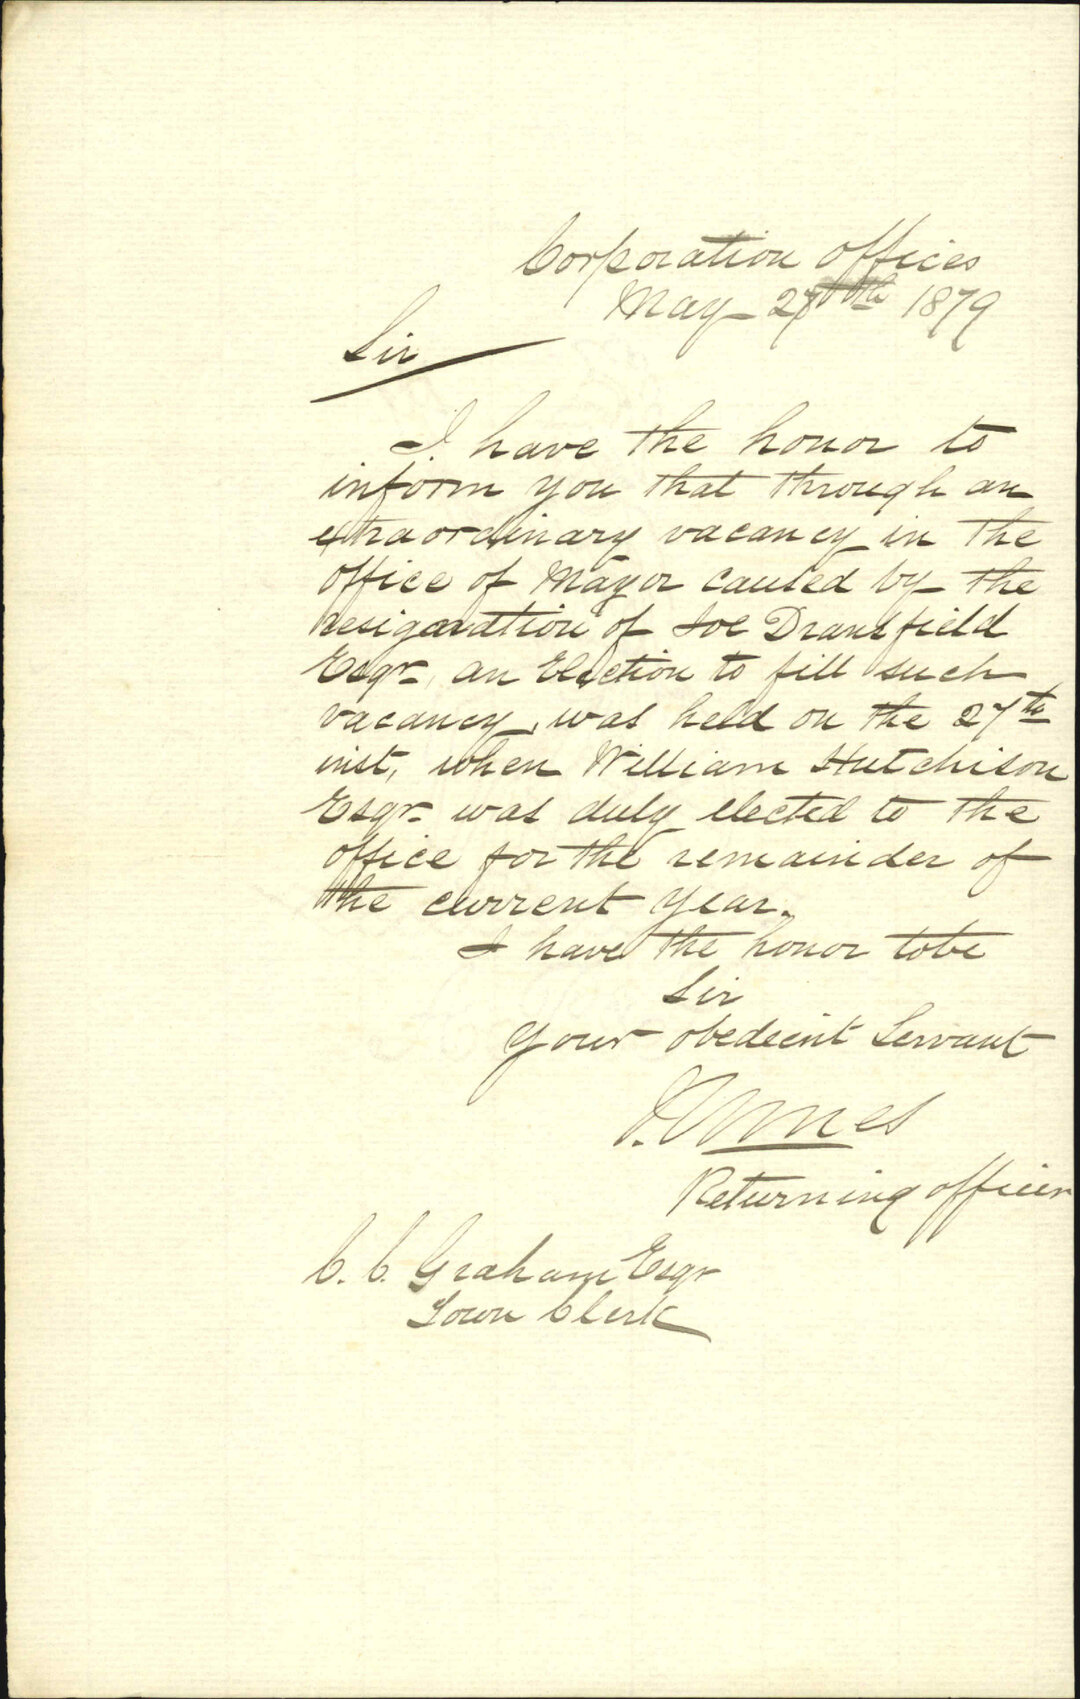 Corporation offices
May 28th 1879
Sir
I have the honor to
inform you that through an
extraordinary vacancy in the
office of Mayor caused by the
resignation of Joe Dransfield
Esqr. an Election to fill such
vacancy, was held on the 27th
inst, when William Hutchison
Esqr. was duly elected to the
office for the remainder of
the current year.
I have the honor to be
Sir
your obedient Servant
Ames
Returning officer
C. C. Graham Esqr
Town Clerk